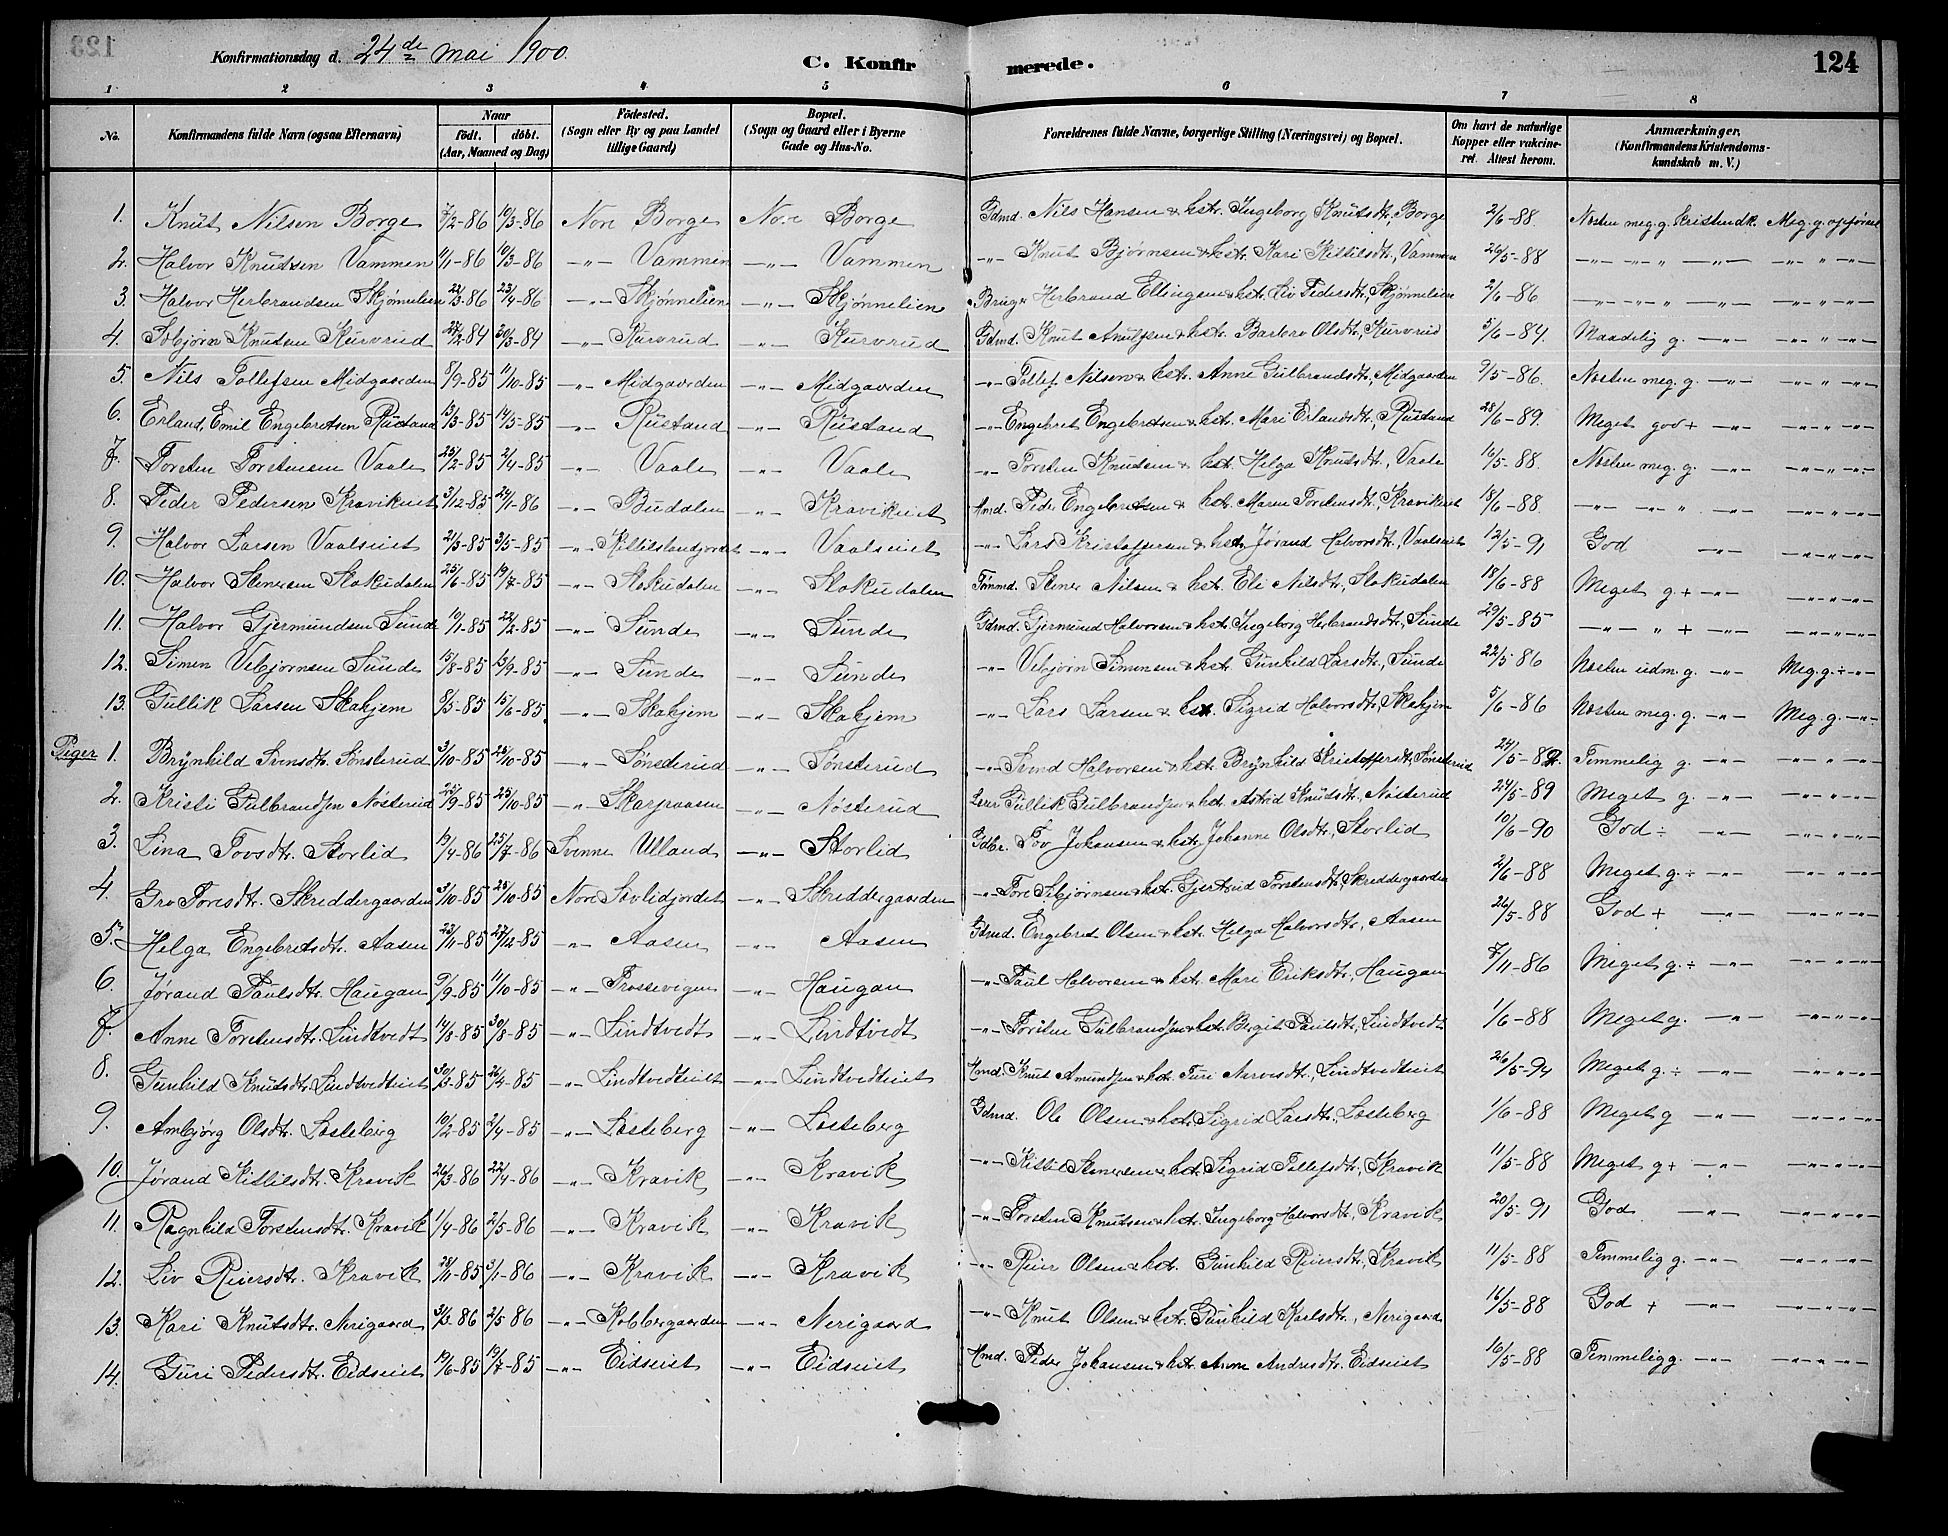 Konfirmationsdag d. 24de mai 1900. C. Konfirmerede. 124
1 2 3 4 5 6 7 8
No. Konfirmandens fulde Navn (ogsaa Efternavn) Naar födt. döbt. (Aar, Maaned og Dag) Födested. (Sogn eller By og paa Landet tillige Gaard) Bopæl. (Sogn og Gaard eller i Byerne Gade og Hus-No. Forældrenes fulde Navne, borgerlige Stilling (Næringsvei) og Bopæl. Om havt de naturlige Kopper eller vakcineret. Attest herom. Anmærkninger, (Konfirmandens Kristendomskundskab m. V.)
1. Knut Nilsen Borge 7/2-86 19/3-86 Nore Borge Nore Borge Gdmd. Nils Hansen & hstr. Ingeborg Knutsdtr, Borge 2/6-88. Næsten meg. g. kristendk. Meg. g. opførsel
2. Halvor Knudsen Vammen 11/1-86 19/3-86 -"- Vammen -"- Vammen -"- Knut Bjørnsen & hstr. Kari Kittilsdtr, Vammen 26/5-88 -"- -"- " -"- -"- " -"-
3. Halvor Herbrandsen Skjønnelien 22/3-86 23/4-86 -"- Skjønnelien -"- Skjønnelien Bruger Herbrand Ellingsen & hstr. Liv Pedersdtr, Skjønnelien 2/6-86 -"- -"- " -"- -"- " -"-
4. Asbjørn Knutsen Kurvrud 27/2-84 30/3-84 -"- Kurvrud -"- Kurvrud Gdmd. Knut Anulfsen & hstr. Barbro Olsdtr, Kurvrud 5/6-84. Maadelig g. -"- -"- " -"-
5. Nils Tollefsen Midgaarden 8/9-85 11/10-85 -"- Midgaarden -"- Midgaarden -"- Tollef Nilsen & hstr. Anne Gulbrandsdtr, Midgaarden 9/5-86. Næsten meg. g. -"- -"- " -"-
6. Erland Emil Engebretsen Rustand 13/3-85 14/5-85 -"- Rustand -"- Rustand -"- Engebret Engebretsen & hstr. Mari Erlandsdtr, Rustand 28/6-89. Meget god + -"- -"- " -"-
7. Torsten Torstensen Vaale 25/2-85 2/4-85 -"- Vaale -"- Vaale -"- Torsten Knudsen & hstr. Helga Knudsdtr, Vaale 16/5-88. Næsten meg. g. -"- -"- " -"-
8. Peder Pedersen Kravikeiet 3/12-85 24/1-86 -"- Budalen -"- Kravikeiet Hmd. Peder Engebretsen & hstr. Maren Torstensdtr, Kravikeiet 18/6-88. -"- -"- " -"- -"- " -"-
9. Halvor Larsen Vaaleeiet 2/3-85 3/5-85 -"- Kittilslandjordet -"- Vaaleeiet -"- Lars Kristoffersen & hstr. Jørand Halvorsdtr, Vaaleeiet 12/5-91 God -"- -"- " -"-
10. Halvor Stenersen Stokudalen 25/6-85 19/7-85 -"- Stokudalen -"- Stokudalen Tømmd. Stener Nilsen & hstr. Eli Nilsdtr, Stokudalen 18/6-88 Meget g + -"- -"- " -"-
11. Halvor Gjermundsen Sunde 10/1-85 22/2-85 -"- Sunde -"- Sunde Gdmd. Gjermund Halvorsen & hstr. Ingeborg Herbrandsdtr, Sunde 29/5-85 -"- " + -"- -"- " -"-
12. Simen Vebjørnsen Sunde 15/8-85 13/9-85 -"- Sunde -"- Sunde -"- Vebjørn Simensen & hstr. Gunhild Larsdtr, Sunde 22/5-86 Næsten udm. g. -"- Meg. g. ÷ -"-
13. Gullik Larsen Skahjem 8/5-85 15/6-85 -"- Skahjem -"- Skahjem -"- Lars Larsen & hstr. Sigrid Halvorsdtr, Skahjem 5/6-86 Næsten meg. g. -"- Meg. g. -"-
Piger 1. Brynhild Svensdtr. Sønsterud 3/10-85 25/10-85 -"- Sønsterud -"- Sønsterud -"- Svend Halvorsen & hstr. Brynhild Kristoffersdtr, Sønsterud 24/5-89. Temmelig g. -"- -"- " -"-
2. Kristi Gulbrandsen Nøsterud 25/9-85 25/10-85 -"- Skarpaasen -"- Nøsterud Gullik Gulbrandsen & hstr. Astrid Knudsdtr, Nøsterud 24/5-89 Meget g. -"- -"- " -"-
3. Lina Tovsdtr. Storlid 19/4-86 25/7-86 Svenne Ulland -"- Storlid Gdbr. Tov Johansen & hstr. Johanne Olsdtr, Storlid 10/6-90 God ÷ -"- -"- " -"-
4. Gro Toresdtr. Skreddergaarden 3/10-85 25/10-85 Nore Sevlidjordet -"- Skreddergaarden -"- Tore Asbjørnsen & hstr. Gjertrud Torstensdtr, Skreddergaarden 2/6-88 Meget g ÷ -"- -"- " -"-
5. Helga Engebretsdtr. Aasen 23/11-85 27/12-85 -"- Aasen -"- Aasen Gdmd. Engebret Olsen & hstr. Helga Halvorsdtr, Aasen 26/5-88 God + -"- -"- " -"-
6. Jørand Paulsdtr. Haugan 9/9-85 11/10-85 -"- Trossevigen -"- Haugan -"- Paul Halvorsen & hstr. Mari Eriksdtr, Haugan 7/11-86 Meget g. ÷ -"- -"- " -"-
7. Anne Torstensdtr. Lindtvedt 14/8-85 30/8-85 -"- Lindtvedt -"- Lindtvedt -"- Torsten Gulbrandsen & hstr. Bergit Paulsdtr, Lindtvedt 1/6-88 Meget g. -"- -"- " -"-
8. Gunhild Knutsdtr. Lindtvedteiet 30/3-85 26/4-85 -"- Lindtvedteiet -"- Lindtvedteiet Hmd. Knut Amundsen & hstr. Turi Narvesdtr, Lindtvedteiet 26/5-94 Meget g. ÷ -"- -"- " -"-
9. Ambjørg Olsdtr. Losteberg 10/2-85 2/4-85 -"- Losteberg -"- Losteberg Gdmd. Ole Olsen & hstr. Sigrid Larsdtr, Losteberg 1/6-88 Meget g -"- -"- " -"-
10. Jørand Kittilsdtr. Kravik 26/3-86 22/4-86 -"- Kravik -"- Kravik -"- Kittil Stenersen & hstr. Sigrid Tollefsdtr, Kravik 11/5-88 Meget g + -"- -"- " -"-
11. Ragnhild Torstensdtr. Kravik 1/4-86 2/5-86 -"- Kravik -"- Kravik -"- Torsten Knutsen & hstr. Ingeborg Halvorsdtr, Kravik 20/5-91 God -"- -"- " -"-
12. Liv Reiersdtr. Kravik 28/11-85 3/1-86 -"- Kravik -"- Kravik -"- Reier Olsen & hstr. Gunhild Reiersdtr, Kravik 11/5-88 Temmelig g. -"- -"- " -"-
13. Kari Knutsdtr. Nerigaard 31/3-86 2/5-86 -"- Kobbergaarden -"- Nerigaard -"- Knut Olsen & hstr. Gunhild Karlsdtr, Nerigaard 16/5-88 God + -"- -"- " -"-
14. Guri Pedersdtr. Eidseiet 19/6-85 19/7-85 -"- Eidseiet -"- Eidseiet Hmd. Peder Johansen & hstr. Anne Andersdtr. Eidseiet 16/5-88 Temmelig g. -"- -"- " -"-